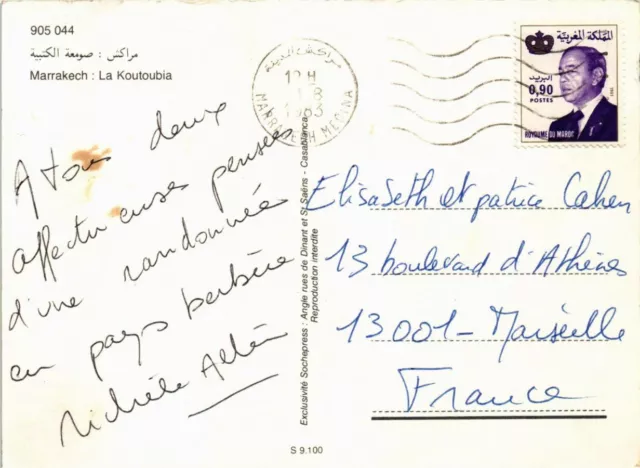 905 044
مراكش : صومعة الكتبية
Marrakech : La Koutoubia
A tous deux
affectueuses pensées
d'une randonnée
en pays berbère
Michèle
Exclusivité Sochepress : Angle rues de Dinant et St Saëns - Casablanca
Reproduction interdite
S 9.100
مراكش المدينة
12 H
8
1983
MARRAKECH MEDINA
المملكة المغربية
البريد
0,90
POSTES
ROYAUME DU MAROC
Elisabeth et patrice Cahen
13 boulevard d'Athènes
13001 - Marseille
France